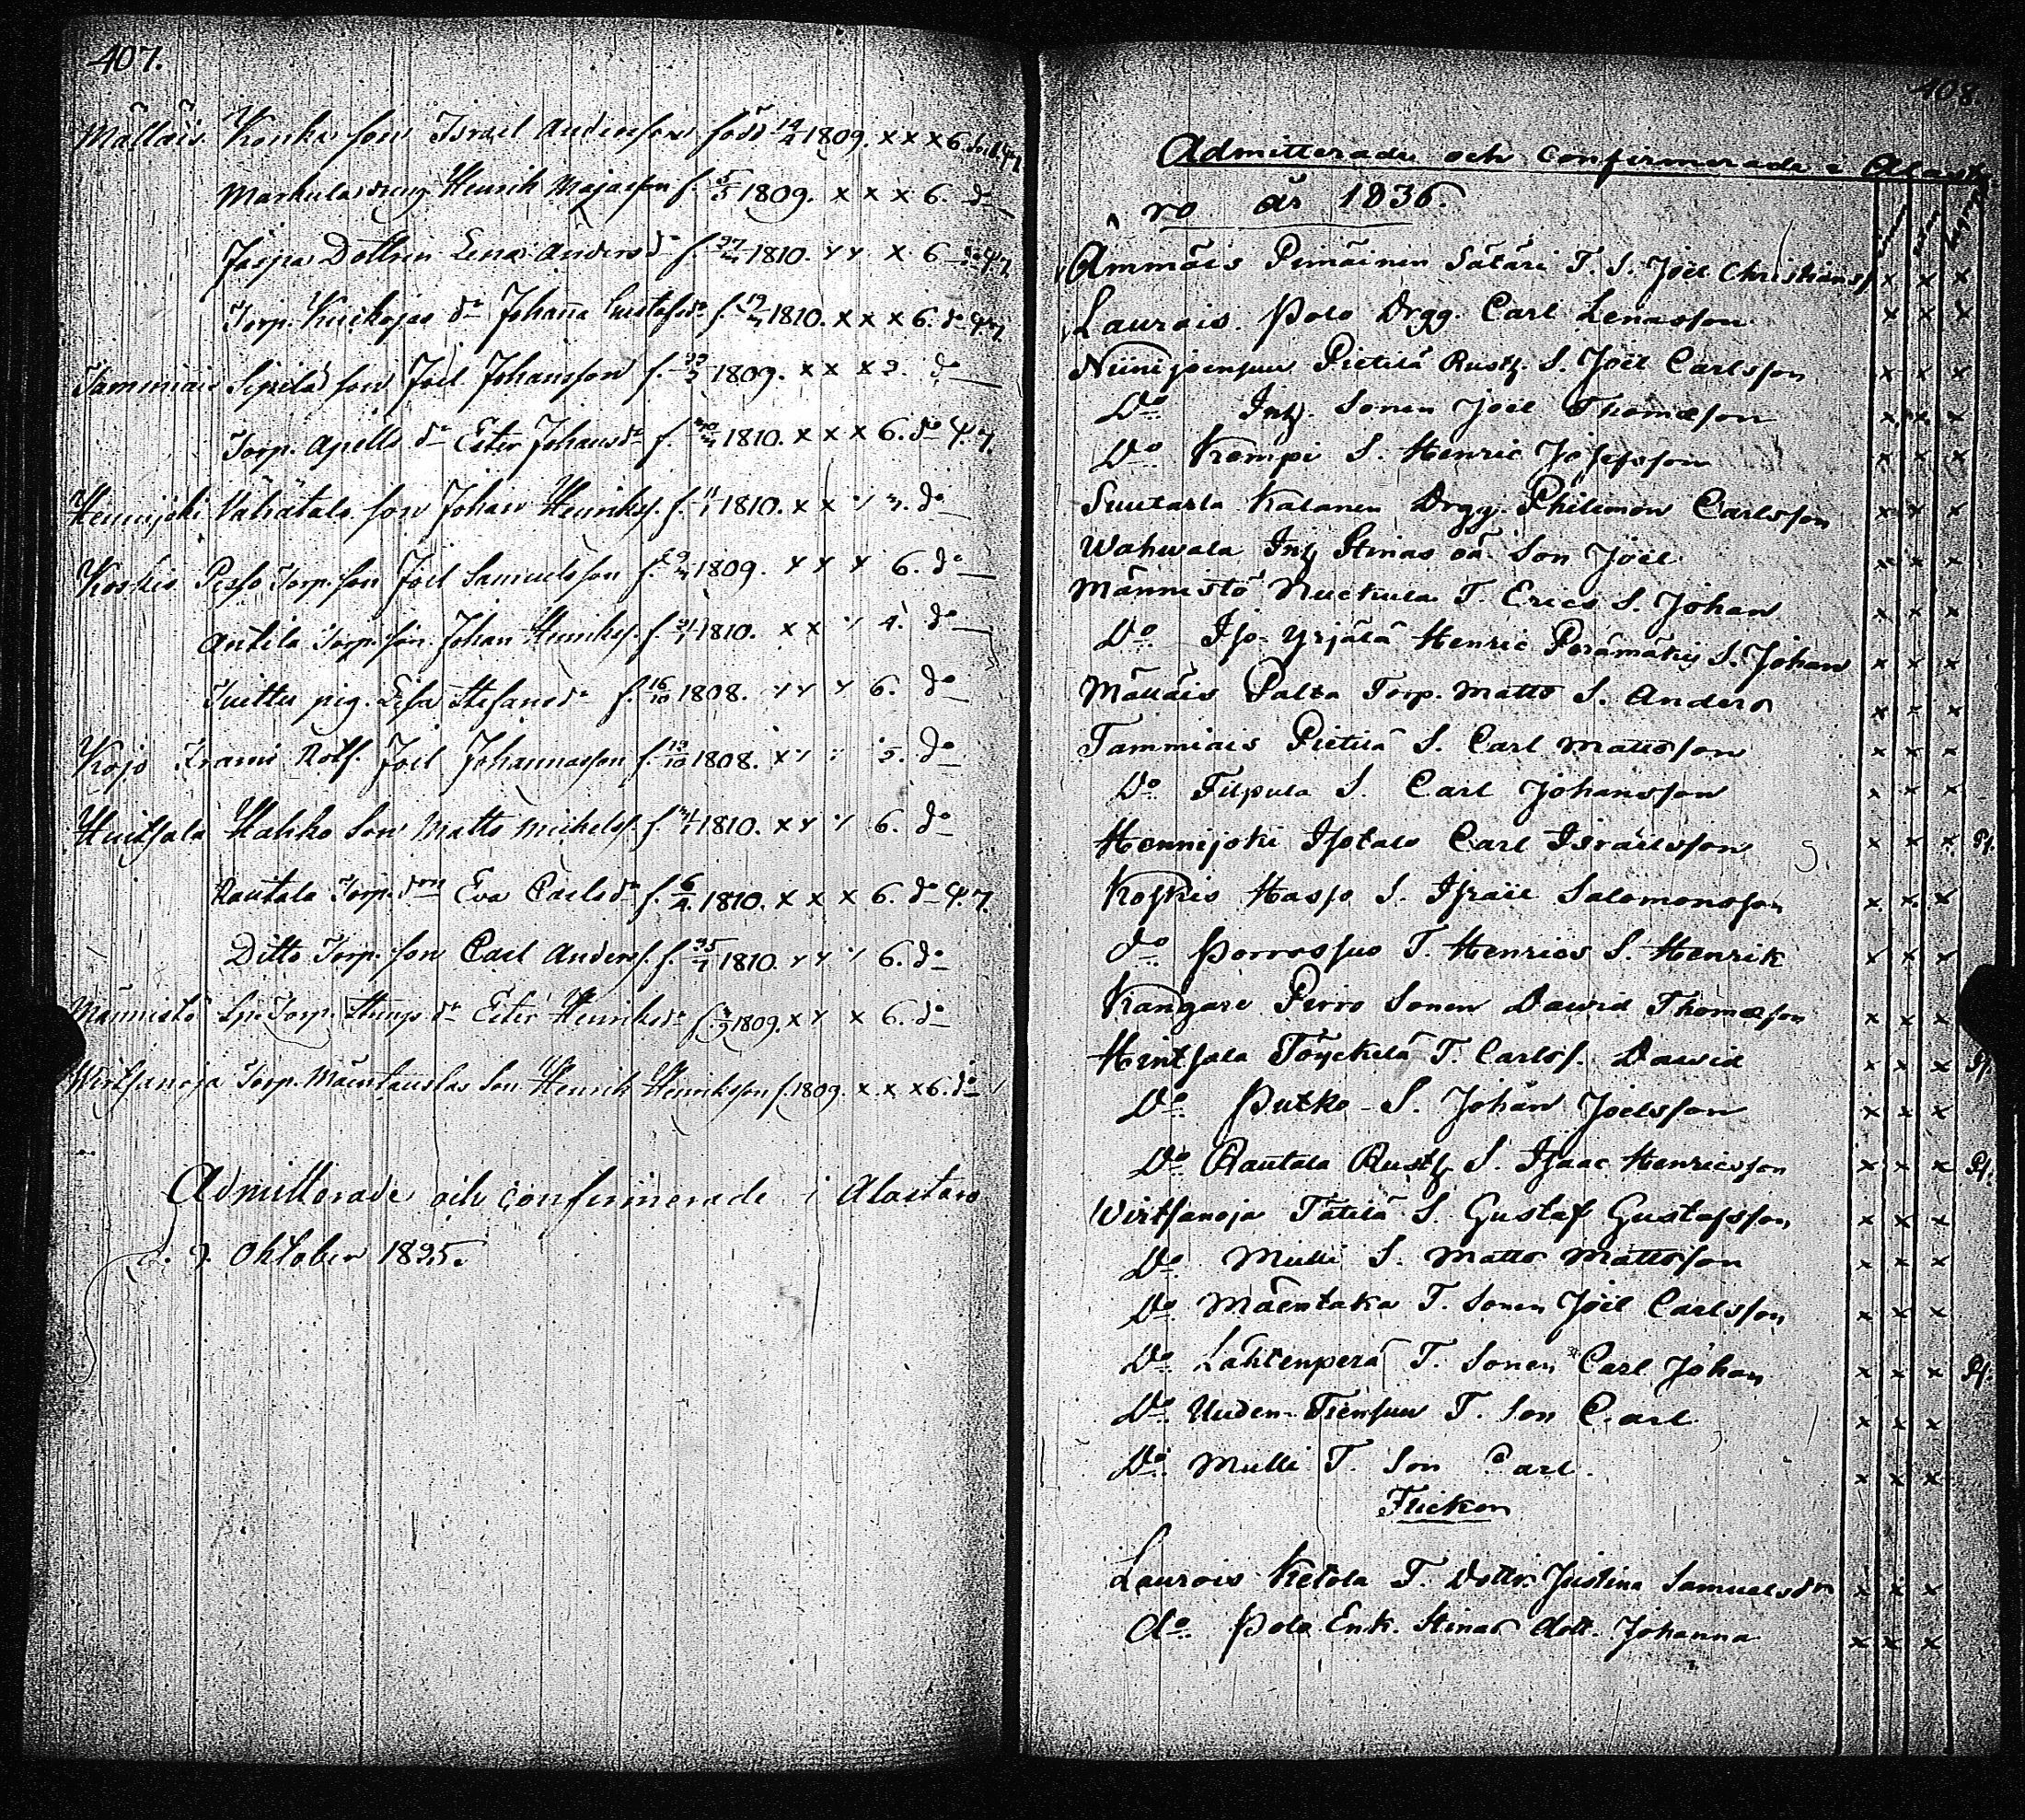 407.
Mälläis Konka son Israel Andersson född 14/4 1809. x x x 6.
Markula dreng Henrik Majasson f. 5/5 1809. x x x 6. do
Jaspa Dottren Lena Andersdr f. 27/4 1810. x x x 6 do
Torp. dr Johanna Gustafsdr f. 12/4 1810. x x x 6. do
Tammiais Sipilä son Joel Johansson f. 1809. x x x do
Torp. Apello dr Ester Johansdr f. 1810. x x x 6. do
Hennijoki Vähätalo son Johan Henrikss. f. 11/1 1810. x x x do
Koskis Torp. son Joel Samuelsson f. 1809. x x x 6. do
Antila Torp. son Johan Henrikss. f. 21/1 1810. x x x 4. do
Tuittu pig. Lisa Stefansdr f. 16/10 1808. x x x 6. do
Kojo Rotf. Joel Johannasson f. 13/10 1808. x x x 5. do
Huitsala Hakko Son Matts Michelss. f. 1810. x x x 6. do
Rautala Torp. Eva Carlsdr f. 6/4 1810. x x x 6. do
Ditto Torp. son Carl Anderss. f. 25/1 1810. x x x 6. do
Männistö Torp. dr Ester Henriksdr f. 1809. x x x 6. do
Wirtsanoja Torp. Mäentaustas Son Henrik Henriksson f. 1809. x x x 6. do
Admitterade och confirmerade i Alastaro
d. 2 Oktober 1825.
408.
Admitterade och Confirmerade i Alasta
ro år 1836.
Ämmäis Pimäinen Sätäri T. S. Joël Christianss x x x
Laurois. Polo Drgg. Carl Lenasson x x x
Niinijoensuu Pietilä Rusth. S. Joël Carlsson x x x
Do Inh. Sonen Joël Thomasson x x x
Do Krempi S. Henric Josefsson x x x
Suutarla Kalanen Drgg. Philimon Carlsson x x x
Wahwala Inh Stinas oä Son Joël x x x
Männistö Nuckula T. Erics S. Johan x x x
Do Iso-Yrjälä Henric Perämäkis S. Johan x x x
Mälläis Palta Torp. Matts S. Anders x x x
Tammiais Pietilä S. Carl Mattsson x x x
Do Filpula S. Carl Johansson x x x
Hennijoki Isotalo Carl Israëlsson x x x
Koskis Hasso S. Israël Salomonsson x x x
do Porrassuo T. Henrics S. Henrik x x x
Kangare Perro Sonen Dawid Thomasson x x x
Hintsala Töyckelä T. Carls S. Dawid x x x
Do Putko S. Johan Joelsson x x x
Do Rautala Rusth S. Isaac Henricsson x x x
Wirtsanoja Tätilä S. Gustaf Gustafsson x x x
Do Mulli S. Matts Mattsson x x x
Do Mäentaka T. Sonen Joël Carlsson x x x
Do Lähtenperä T. Sonen Carl Johan x x x
Do Uuden-Tiensuu T. Son Carl x x x
Do Mulli T. Son Carl. x x x
Flickor
Laurois Ketola T. Dottr. Justina Samuelsdr x x x
do Polo Enk. Stinas dott. Johanna x x x